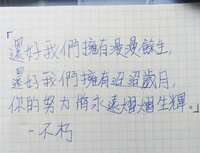 「還好我們擁有漫漫餘生,
還好我們擁有迢迢歲月,
你的努力將永遠熠熠生輝。」
-不朽